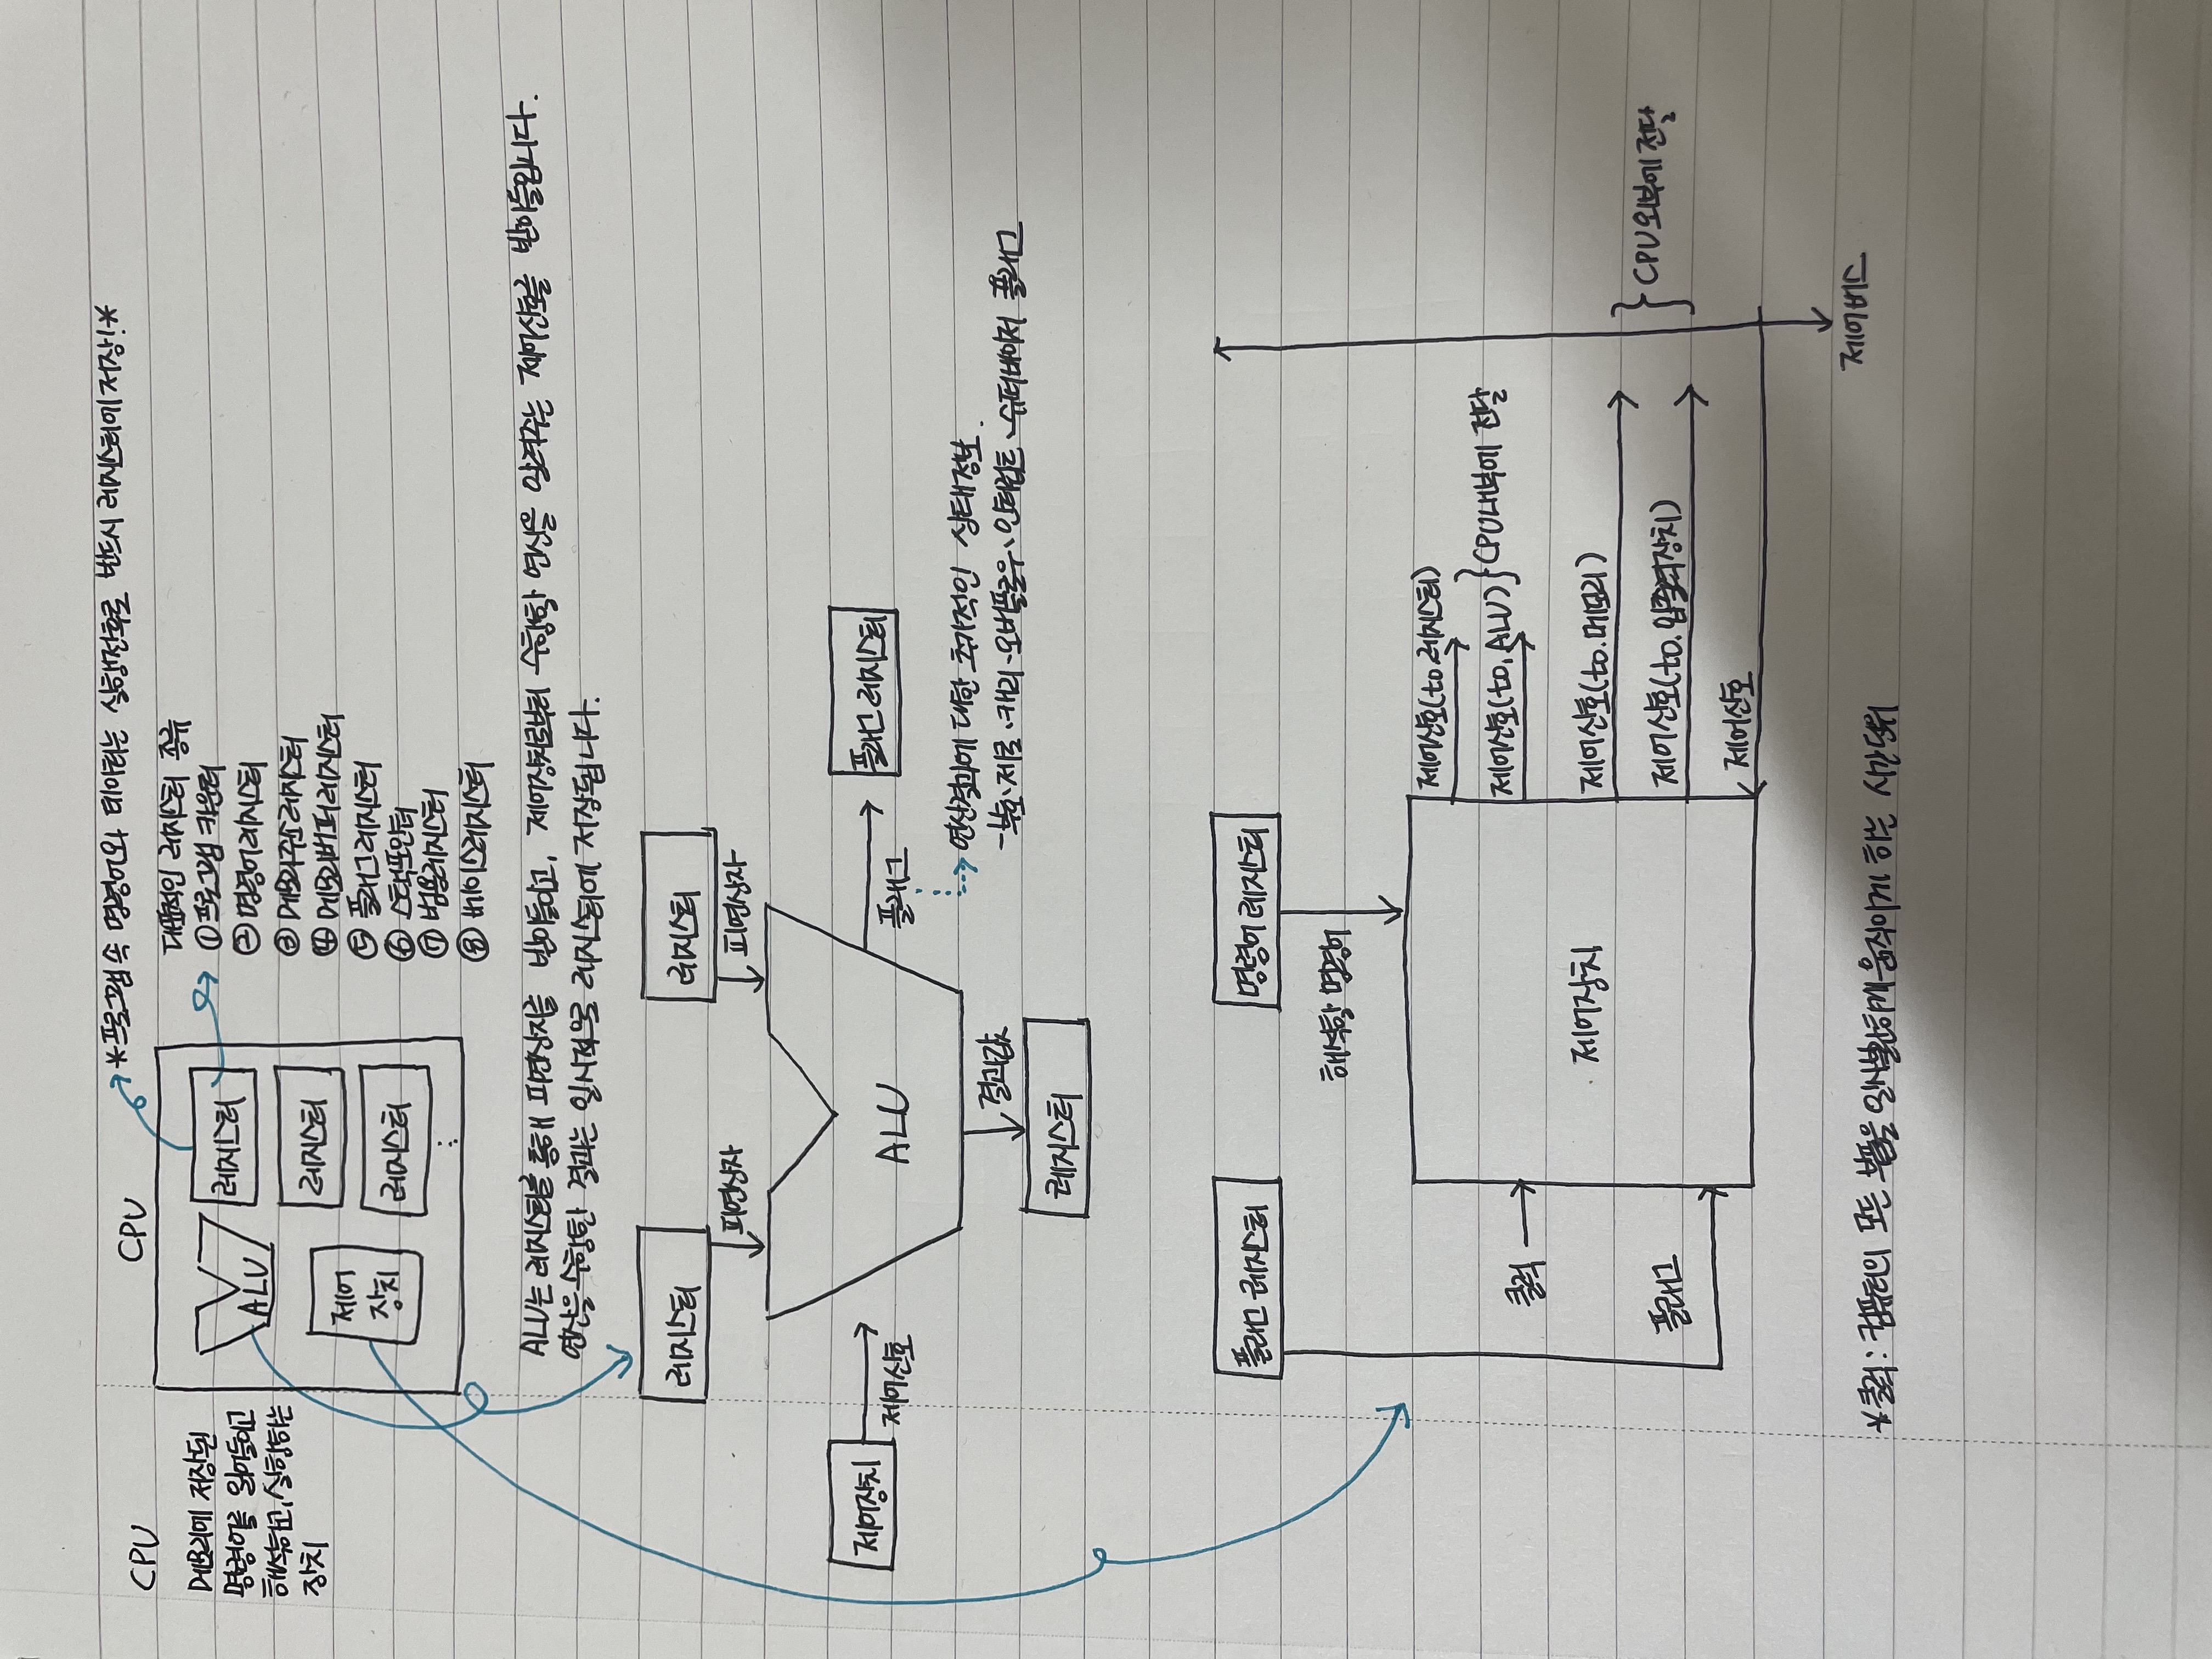 *프로그램 속 명령어와 데이터는 실행전후로 반드시 레지스터에 저장!*
CPU
메모리에 저장된
명령어를 읽어들이고
해석하고, 실행하는
장치
CPU
ALU
제어
장치
레지스터
레지스터
레지스터
대표적인 레지스터 종류
① 프로그램 카운터
② 명령어레지스터
③ 메모리주소레지스터
④ 메모리버퍼레지스터
⑤ 플래그레지스터
⑥ 스택포인터
⑦ 범용레지스터
⑧ 베이스레지스터
ALU는 레지스터를 통해 피연산자를 받아들이고, 제어장치로부터 수행할 연산을 알려주는 제어신호를 받아들입니다.
연산을 수행한 결과는 일시적으로 레지스터에 저장됩니다.
레지스터
레지스터
피연산자
피연산자
제어장치
제어신호
ALU
플래그
플래그 레지스터
연산결과에 대한 추가적인 상태정보.
-부호、제로、캐리、오버플로우、인터럽트、슈퍼바이저 플래그
결과값
레지스터
플래그 레지스터
명령어 레지스터
해석할 명령어
제어신호(to.레지스터)
제어신호(to.ALU)
CPU내부에 전달
클럭
제어장치
제어신호(to.메모리)
제어신호(to.입출력장치)
CPU외부에 전달
플래그
제어신호
제어버스
*클럭: 컴퓨터의 모든 부품을 일사불란하게 움직이게 하는 시간단위